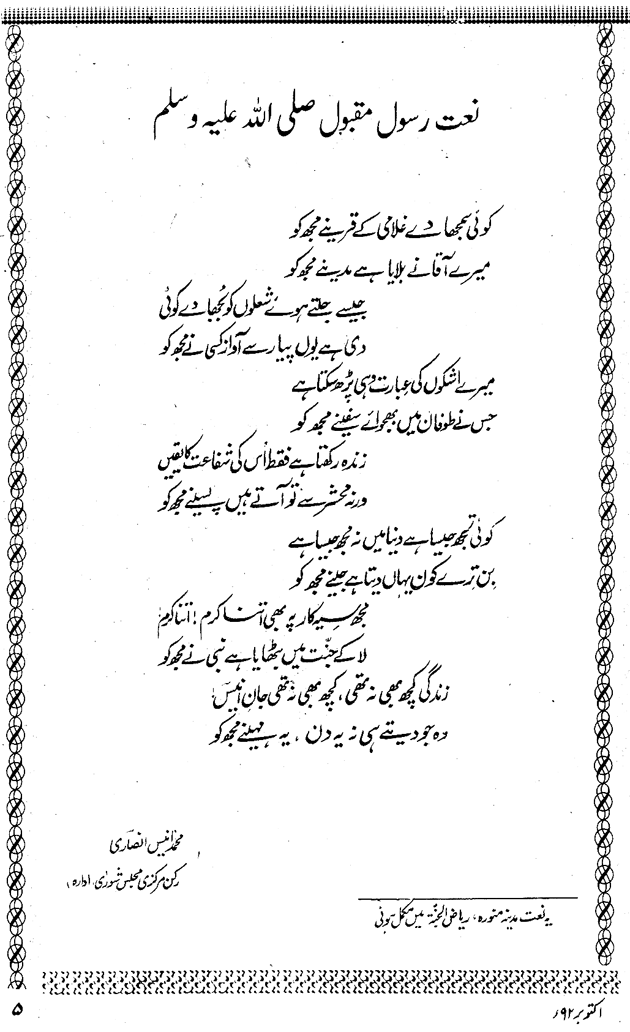 نعت رسول مقبول صلی اللہ علیہ وسلم
کوئی سمجھا دے غلامی کے قرینے مجھ کو
میرے آقا نے بلایا ہے مدینے مجھ کو
جیسے جلتے ہوئے شعلوں کو بُجھا دے کوئی
دی ہے یوں پیار سے آواز کسی نے مجھ کو
میرے اشکوں کی عبارت وہی پڑھ سکتا ہے
جس نے طوفان میں بھجوائے سفینے مجھ کو
زندہ رکھتا ہے فقط اُس کی شفاعت کا یقیں
ورنہ محشر سے تو آتے ہیں پسینے مجھ کو
کوئی تجھ جیسا ہے دنیا میں نہ مجھ جیسا ہے
بِن ترے کون یہاں دیتا ہے جینے مجھ کو
مجھ سیہ کار پہ بھی اتنا کرم ! اتنا کرم
لا کے جنّت میں بٹھایا ہے نبی نے مجھ کو
زندگی کچھ بھی نہ تھی، کچھ بھی نہ تھی جانِ انیسؔ
وہ جو دیتے ہی نہ یہ دن ، یہ مہینے مجھ کو
محمد انیس انصاری
رکن مرکزی مجلس شوریٰ (ادارہ)
یہ نعت مدینہ منورہ، ریاض الجنّۃ میں مکمل ہوئی
اکتوبر ۹۲ء
۵